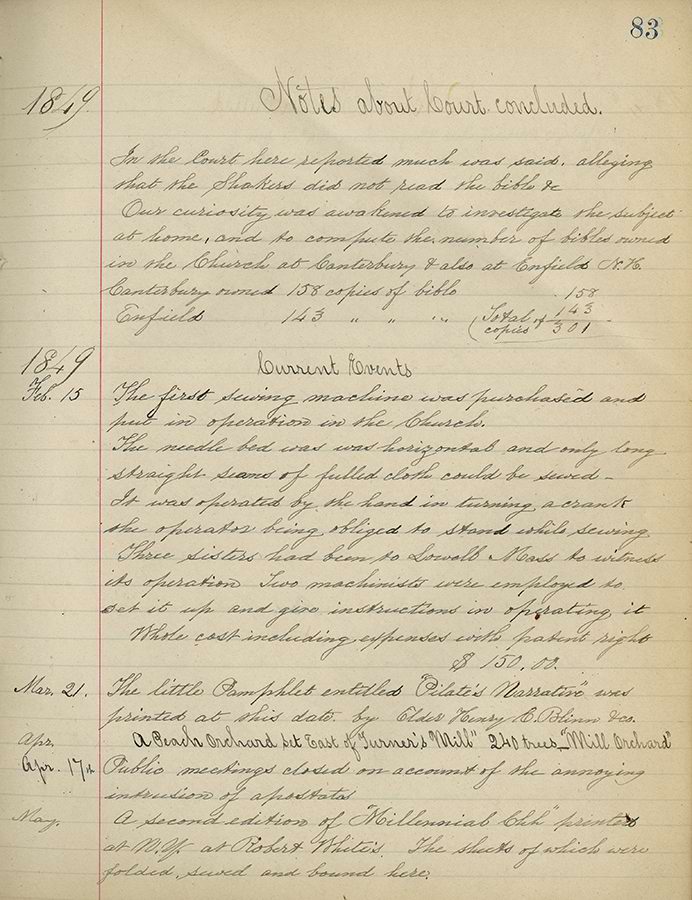 83
1849. Notes about Court concluded.
In the Court here reported much was said, alleging
that the Shakers did not read the bible &c
Our curiosity was awakened to investigate the subject
at home, and to compute the number of bibles owned
in the Church at Canterbury & also at Enfield N.H.
Canterbury owned 158 copies of bible 158
Enfield 143 " " " (Total of 143
copies 301
1849 Current Events
Feb. 15 The first sewing machine was purchased and
put in operation in the Church.
The needle bed was was horizontal and only long
straight seams of fulled cloth could be sewed –
It was operated by the hand in turning a crank
the operator being obliged to stand while sewing
Three sisters had been to Lowell Mass to witness
its operation Two machinists were employed to
set it up and give instructions in operating it
Whole cost including expenses with patent right
$ 150.00.
Mar. 21. The little Pamphlet entitled "Pilate's Narrative" was
printed at this date by Elder Henry C. Blinn &co.
Apr. A Peach Orchard set East of "Turner's Mill" 240 trees – "Mill Orchard"
Apr. 17th Public meetings closed on account of the annoying
intrusion of apostates
May. A second edition of "Millennial Chh" printed
at N.Y. at Robert White's. The sheets of which were
folded, sewed and bound here.